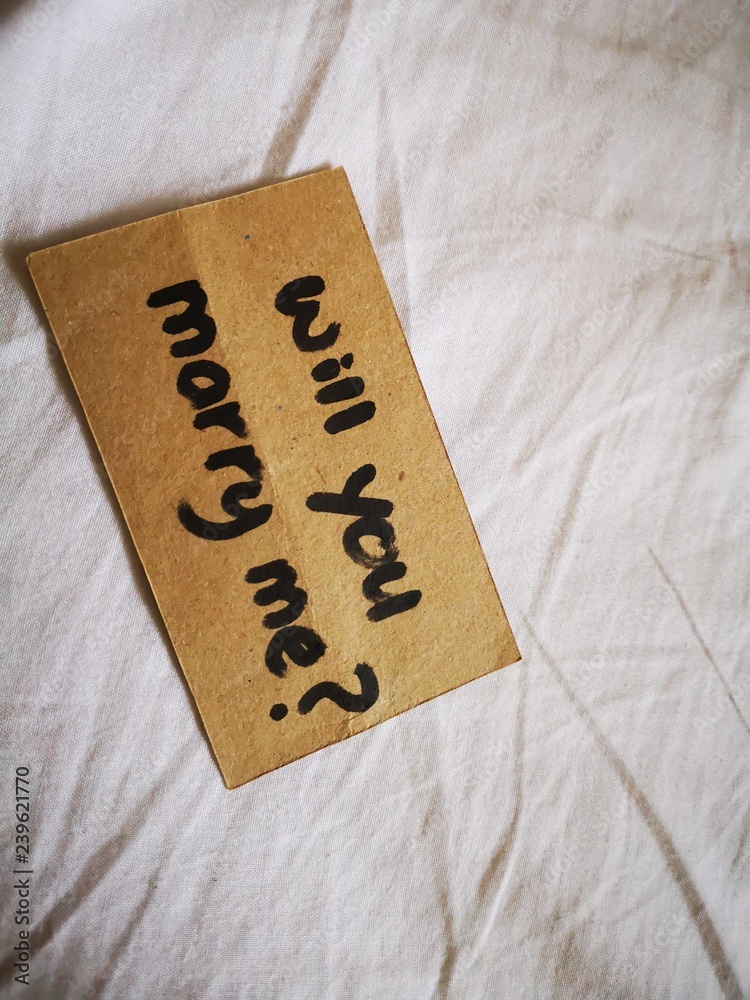 will you
marry me?
Adobe Stock | #239621770